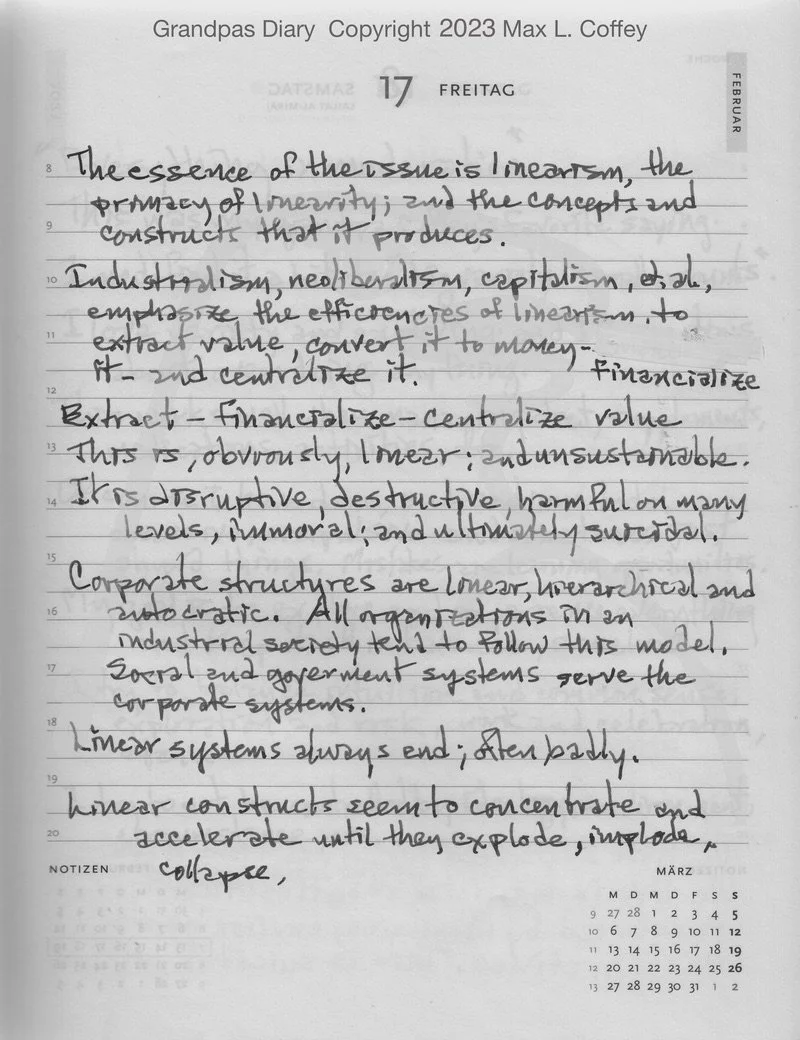 Grandpas Diary Copyright 2023 Max L. Coffey
17 FREITAG
FEBRUAR
8 The essence of the issue is linearism, the
primacy of linearity; and the concepts and
9 constructs that it produces.
10 Industrialism, neoliberalism, capitalism, et. al.,
emphasize the efficiencies of linearism, to
11 extract value, convert it to money-
it- and centralize it. Financialize
12
Extract - financialize - centralize value
13 This is, obviously, linear; and unsustainable.
14 It is disruptive, destructive, harmful on many
levels, immoral; and ultimately suicidal.
15
Corporate structures are linear, hierarchical and
16 autocratic. All organizations in an
industrial society tend to follow this model.
17 Social and goverment systems serve the
corporate systems.
18 Linear systems always end; often badly.
19
Linear constructs seem to concentrate and
20 accelerate until they explode, implode,
NOTIZEN collapse,
MÄRZ
M D M D F S S
9 27 28 1 2 3 4 5
10 6 7 8 9 10 11 12
11 13 14 15 16 17 18 19
12 20 21 22 23 24 25 26
13 27 28 29 30 31 1 2